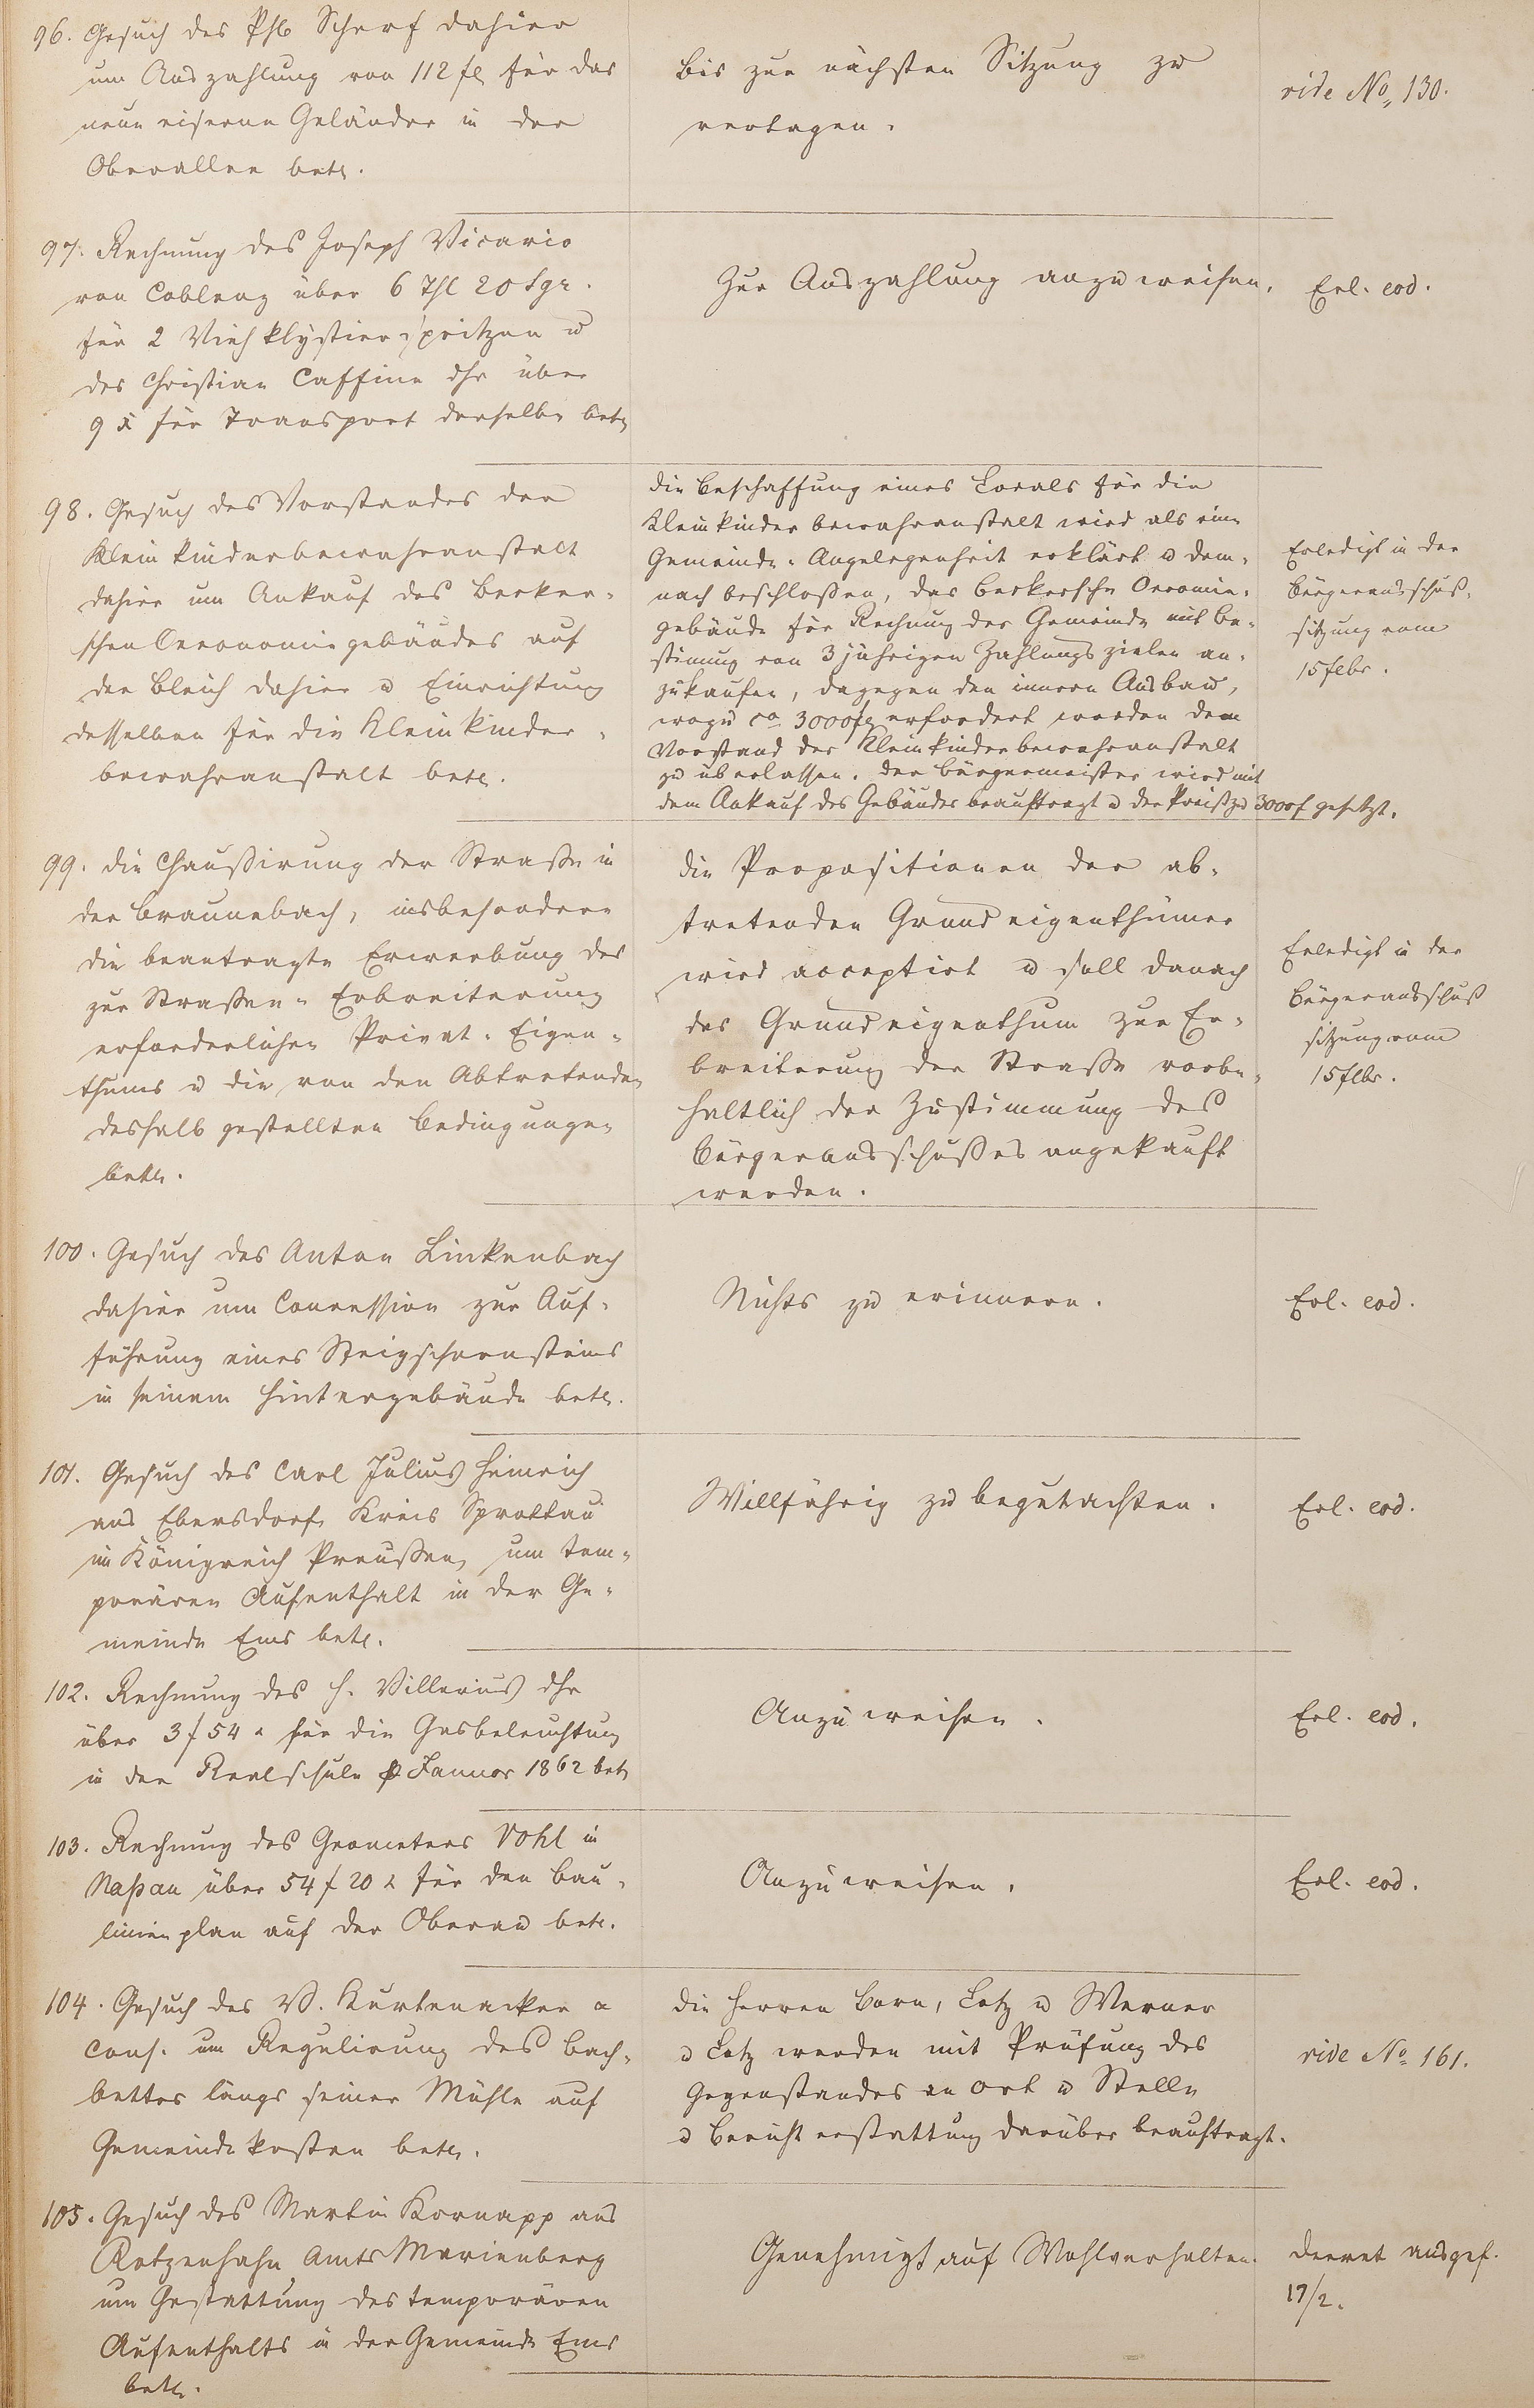 96. Gesuch des Phb Scherf dahier
um Auszahlung von 112 fl für das
neue eiserne Geländer in der
Oberallee betr.
bis zur nächsten Sitzung zu
vertagen.
vide No. 130.
97. Rechnung des Joseph Vicario
von Coblenz über 6 Thl 20 Sgr.
für 2 Viehklystierspritzen u
des Christian Caffine dhr über
9 x für Transport derselbe betr
Zur Auszahlung anzuweisen.
Erl. eod.
98. Gesuch des Vorstandes der
Kleinkinderbewahranstalt
dahier um Ankauf des Becker-
schen Oeconomiegebäudes auf
der Bleich dahier u Einrichtung
desselben für die Kleinkinder-
bewahranstalt betr.
die Beschaffung eines Locals für die
Kleinkinderbewahranstalt wird als eine
Gemeinde-Angelegenheit erklärt u dem-
nach beschloßen, das Beckersche Oeconomie-
gebäude für Rechnung der Gemeinde mit Be-
stimung von 3 jährigen Zahlungszielen an-
zukaufen, dagegen den innern Ausbau,
wozu ca 3000 fl erfordert werden dem
Vorstand der Kleinkinderbewahranstalt
zu überlassen. der Bürgermeister wird mit
dem Ankauf des Gebäudes beauftragt u der Preis zu 3000 f gesetzt.
Erledigt in der
Bürgerausschuß-
sitzung vom
15 febr.
99. die Chaußirung der Straße in
der Braunebach, insbesondere
die beantragte Erwerbung des
zur Straßen-Erbreiterung
erforderlichen Privat-Eigen-
thums u die von den Abtretenden
deshalb gestellten Bedingungen
betr.
die Propositionen der ab-
tretenden Grundeigenthümer
wird acceptirt u soll danach
das Grundeigenthum zur Er-
breiterung der Straße vorbe-
haltlich der Zustimmung des
Bürgerausschußes angekauft
werden.
Erledigt in der
Bürgerausschuß
sitzung vom
15 febr.
100. Gesuch des Anton Linkenbach
dahier um Concession zur Auf-
führung eines Steigschornsteins
in seinem Hintergebäude betr.
Nichts zu erinnern.
Erl. eod.
101. Gesuch des Carl Julius Heinrich
aus Ebersdorf, Kreis Sprottau
im Königreich Preußen, um tem-
porären Aufenthalt in der Ge-
meinde Ems betr.
Willfährig zu begutachten.
Erl. eod.
102. Rechnung des H. Villerius dhr
über 3 f 54 x für die Gasbeleuchtung
in der Realschule p Januar 1862 betr
Anzuweisen.
Erl. eod.
103. Rechnung des Geometers Vohl in
Naßau über 54 f 20 x für den Bau-
linienplan auf der Oberau betr.
Anzuweisen.
Erl. eod.
104. Gesuch des W. Kurtenacker &
Cons. um Regulirung des Bach-
bettes längs seiner Mühle auf
Gemeindekosten betr.
die Herren Born, Lotz u Werner
u Lotz werden mit Prüfung des
Gegenstandes an Ort u Stelle
u Berichterstattung darüber beauftragt.
vide No. 161.
105. Gesuch des Martin Kornapp aus
Rotzenhahn Amts Marienberg
um Gestattung des temporären
Aufenthalts in der Gemeinde Ems
betr.
Genehmigt auf Wohlverhalten.
Decret ausgef.
17/2.